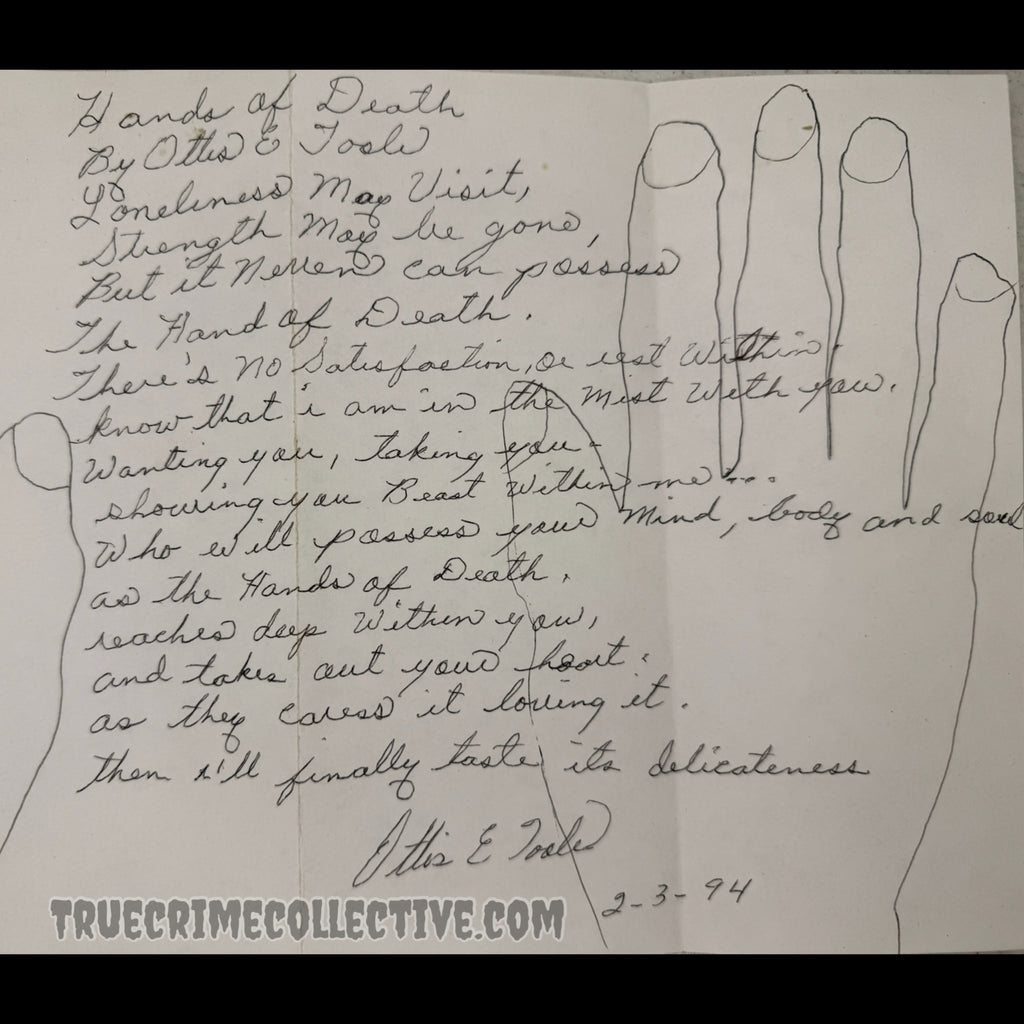 Hands of Death
By Ottis E Toole
Loneliness May Visit,
Strength May be gone,
But it Never can possess
The Hand of Death.
There's No Satisfaction, or rest Within.
know that i am in the Mist With you.
Wanting you, taking you -
showing you Beast Within me...
Who will possess your Mind, body and soul
as the Hands of Death.
reaches deep Within you,
and takes out your heart.
as they caress it loving it.
then i'll finally taste its delicateness
Ottis E Toole
2-3-94
TRUECRIMECOLLECTIVE.COM